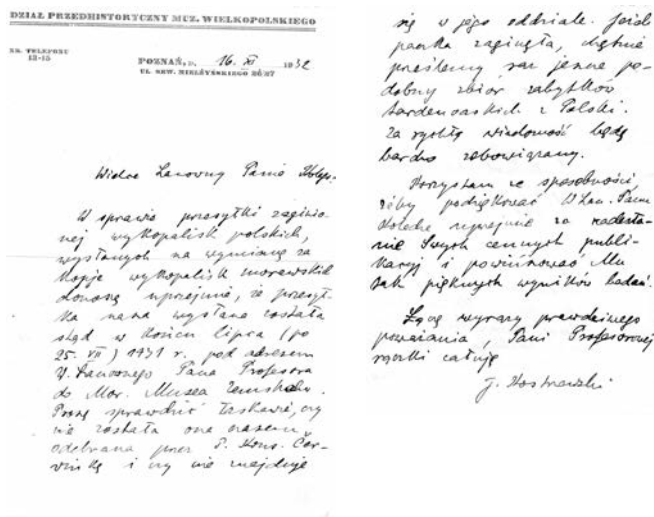 DZIAŁ PRZEDHISTORYCZNY MUZ. WIELKOPOLSKIEGO
NR. TELEFONU
12-15
POZNAŃ, D. 16. XI 1932
UL. SEW. MIELŻYŃSKIEGO 26/27
Wielce Szanowny Panie Kolego.
W sprawie przesyłki zaginio-
nej wykopalisk polskich,
wysłanych na wymianę za
kopje wykopalisk morawskich
donoszę uprzejmie, że przesył-
ka nasza wysłana została
stąd w końcu lipca (po
25. VII) 1931 r. pod adresem
W. Szanownego Pana Profesora
do Mor. Musea Zemskeho.
Proszę sprawdzić łaskawie, czy
nie została ona czasem
odebrana przez P. Kons. Čer-
vinkę i czy nie znajduje
się w jego oddziale. Jeśli
paczka zaginęła, chętnie
prześlemy raz jeszcze po-
dobny zbiór zabytków
tardenoaskich z Polski.
Za rychłą wiadomość będę
bardzo zobowiązany.
Korzystam ze sposobności,
żeby podziękować W Szan. Panu
Koledze uprzejmie za nadesła-
nie Swych cennych publi-
kacyj i powinszować Mu
tak pięknych wyników badań.
Łączę wyrazy prawdziwego
poważania, Pani Profesorowej
rączki całuję
J. Kostrzewski